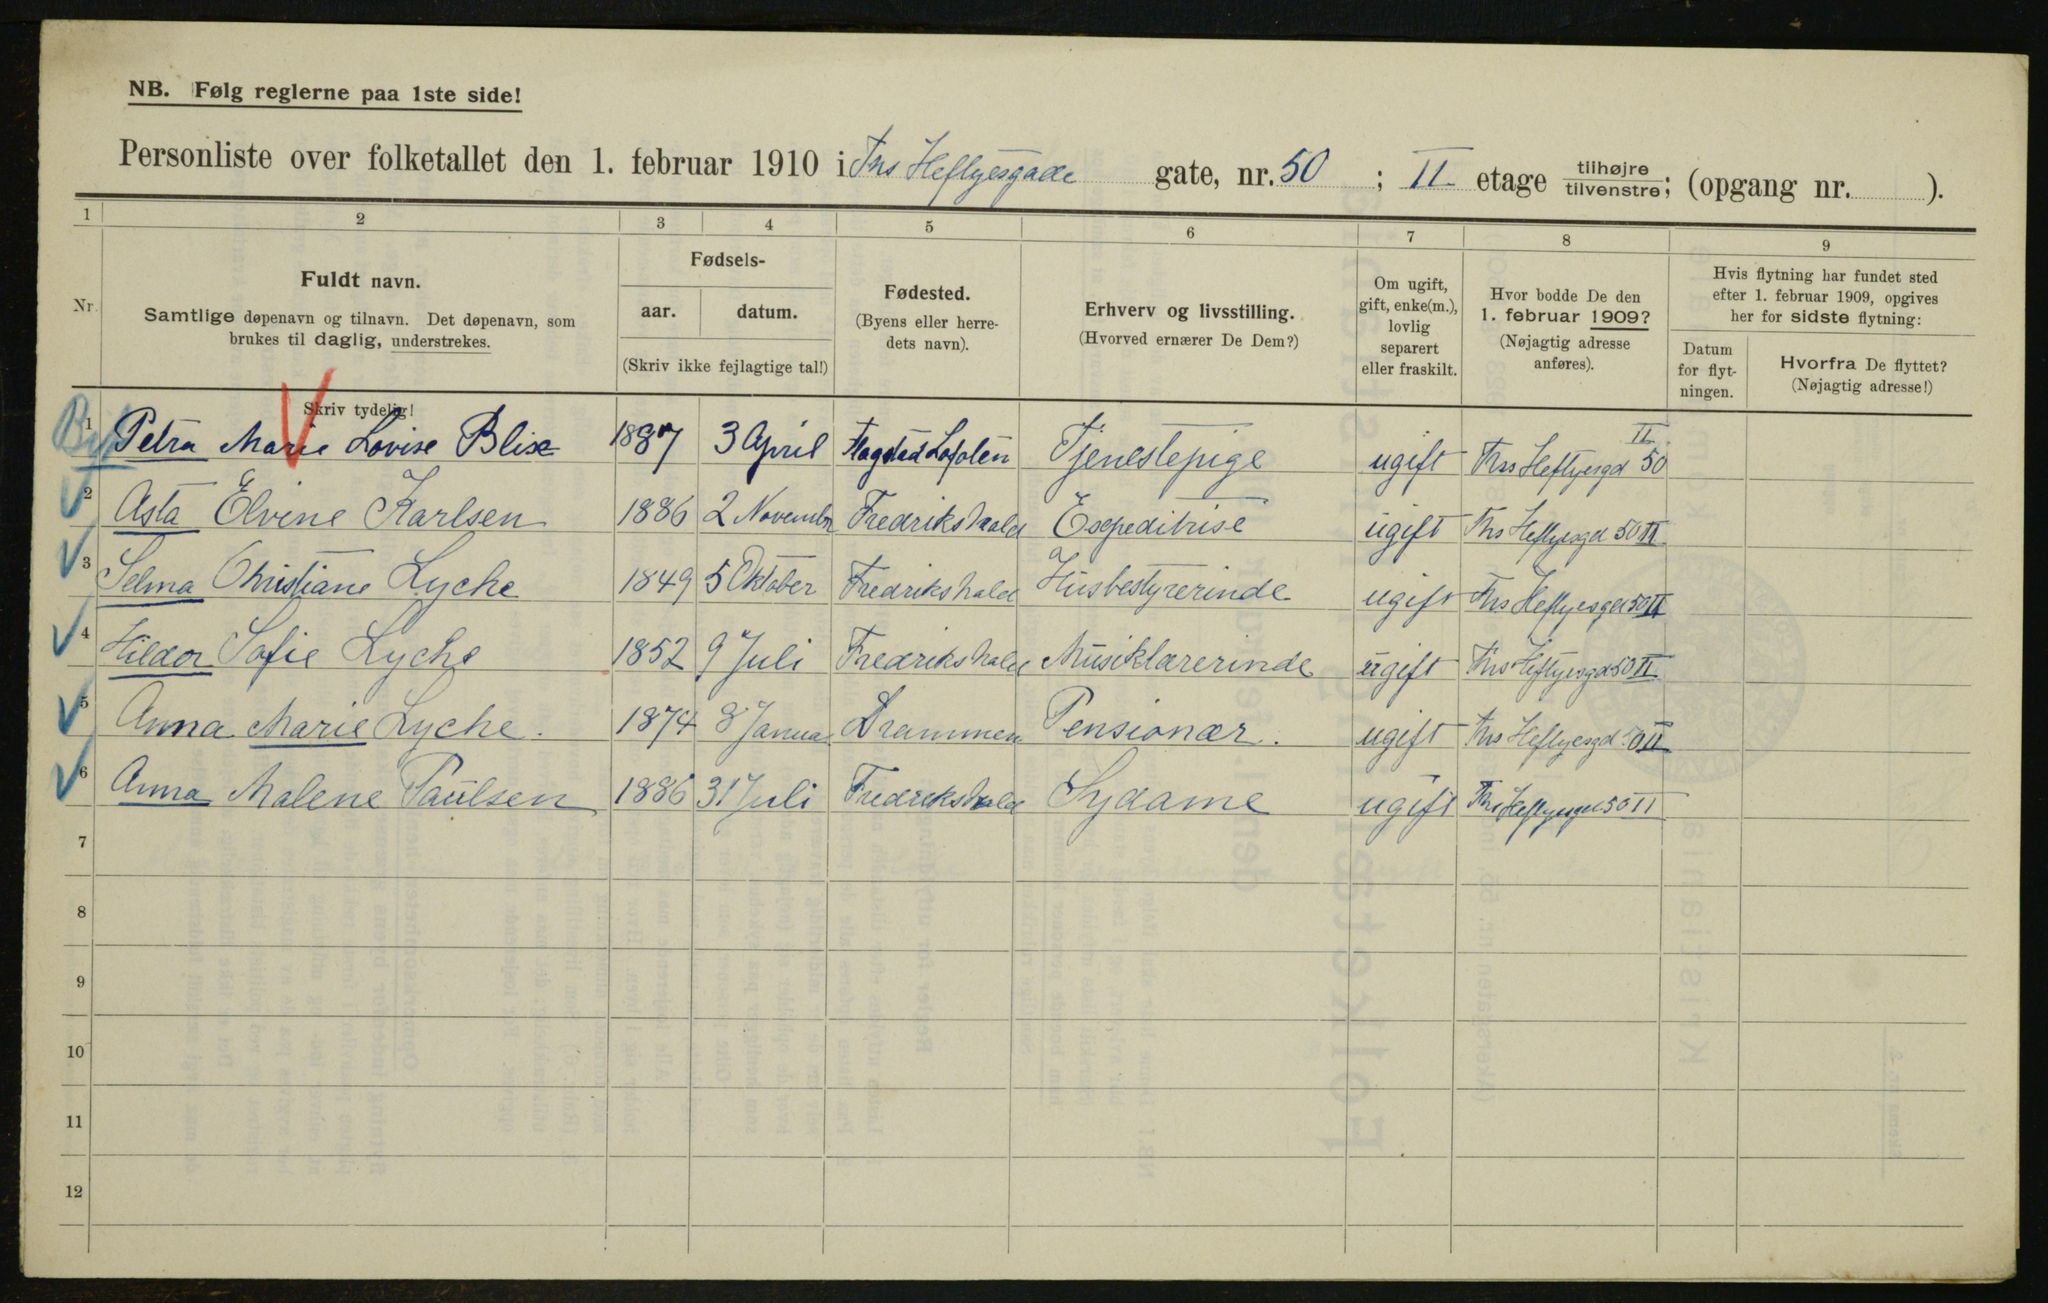 NB. Følg reglerne paa 1ste side!
Personliste over folketallet den 1. februar 1910 i Ths Heftyesgade gate, nr. 50; II etage tilhøjre tilvenstre; (opgang nr. ).
1 2 3 4 5 6 7 8 9
Nr.
Fuldt navn.
Samtlige døpenavn og tilnavn. Det døpenavn, som
brukes til daglig, understrekes.
Skriv tydelig!
Fødsels-
aar. datum.
(Skriv ikke fejlagtige tal!)
Fødested.
(Byens eller herre-
dets navn).
Erhverv og livsstilling.
(Hvorved ernærer De Dem?)
Om ugift,
gift, enke(m.),
lovlig
separert
eller fraskilt.
Hvor bodde De den
1. februar 1909?
(Nøjagtig adresse
anføres).
Hvis flytning har fundet sted
efter 1. februar 1909, opgives
her for sidste flytning:
Datum
for flyt-
ningen.
Hvorfra De flyttet?
(Nøjagtig adresse!)
1 Petra Marie Lovise Blix 1887 3 April Flagstad Lofoten Tjenestepige ugift Ths Heftyesgd 50 II
2 Asta Elvine Karlsen 1886 2 Novembr Fredrikshald Expeditrise ugift Ths Heftyesgd 50 II
3 Selma Christiane Lyche 1849 5 Oktober Fredrikshald Husbestyrerinde ugift Ths Heftyesgd 50 II
4 Hildor Sofie Lyche 1852 9 Juli Fredrikshald Musiklærerinde ugift Ths Heftyesgd 50 II
5 Anna Marie Lyche. 1874 8 Januar Drammen Pensionær. ugift Ths Heftyesgd 50 II
6 Anna Malene Paulsen 1886 31 Juli Fredrikshald Sydame ugift Ths Heftyesgd 50 II
7
8
9
10
11
12